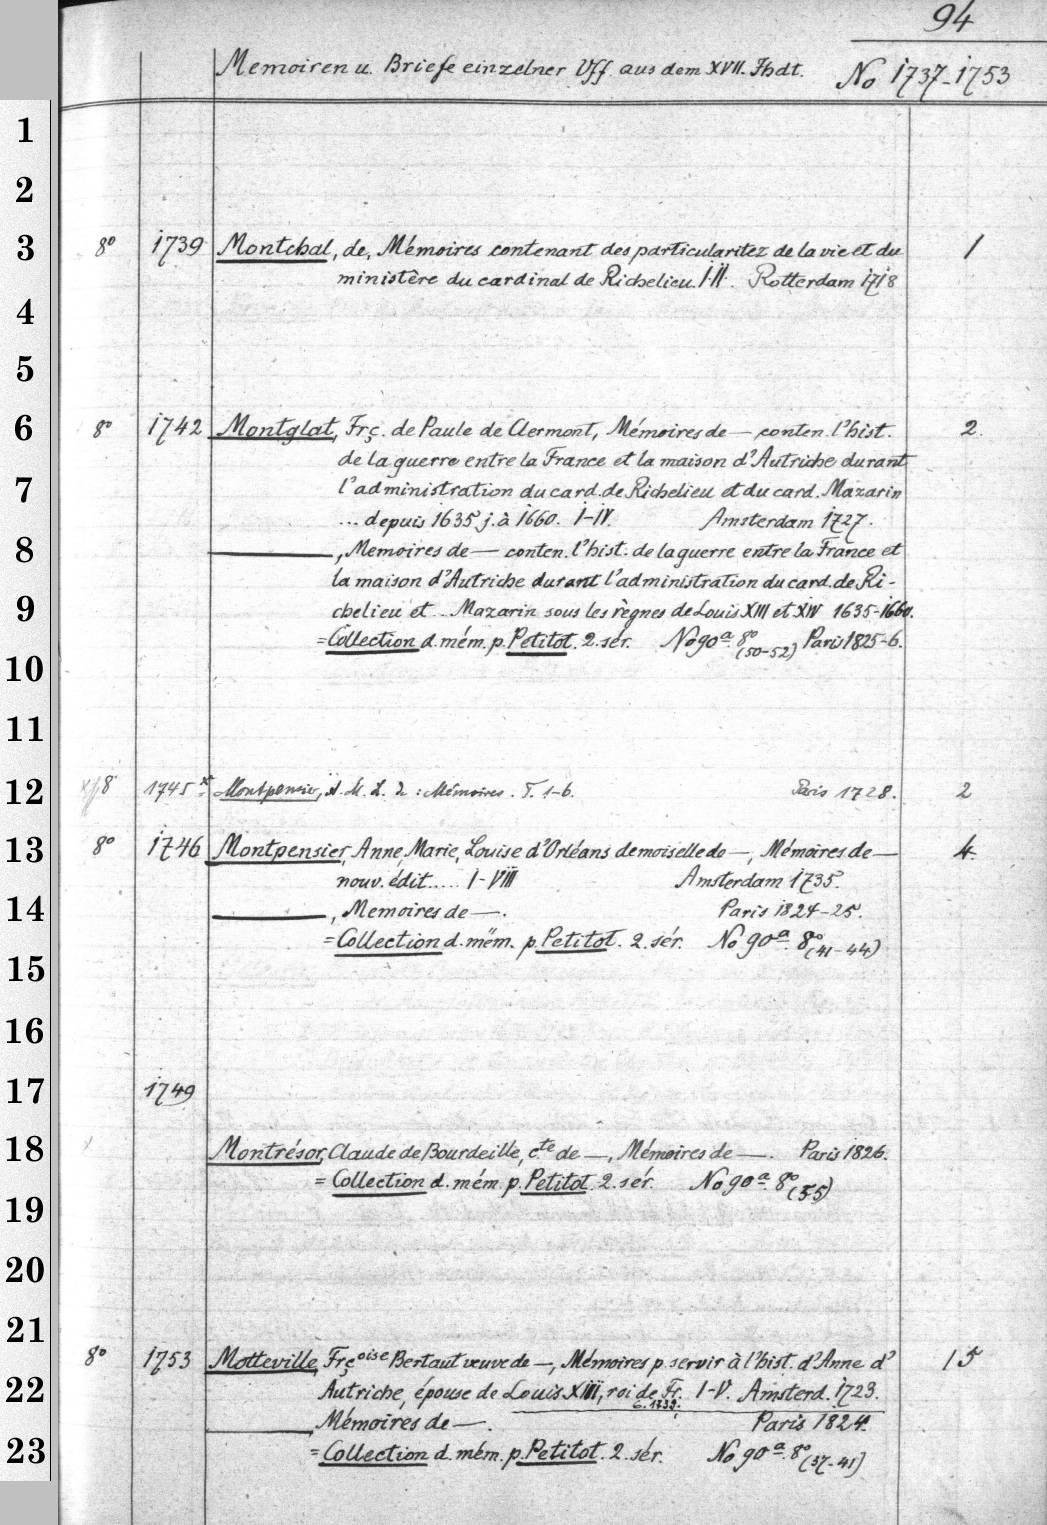 94
Memoiren u. Briefe einzelner Vff. aus dem XVII. Jhdt. No 1737-1753
1
2
3 8° 1739 Montchal, de, Mémoires contenant des particularitez de la vie et du 1
ministère du cardinal de Richelieu. I-II. Rotterdam 1718
4
5
6 8° 1742 Montglat, Frç. de Paule de Clermont, Mémoires de — conten. l'hist. 2.
de la guerre entre la France et la maison d'Autriche durant
7 l'administration du card. de Richelieu et du card. Mazarin
... depuis 1635 j. à 1660. I-IV. Amsterdam 1727.
8 —, Memoires de — conten. l'hist. de la guerre entre la France et
la maison d'Autriche durant l'administration du card. de Ri-
9 chelieu et ... Mazarin sous les règnes de Louis XIII et XIV 1635-1660.
= Collection d. mém. p. Petitot. 2. sér. No 90ª. 8° (50-52) Paris 1825-6.
10
11
12 8° 1745 x Montpensier, A. M. L. d.: Mémoires. T. 1-6. Paris 1728. 2
13 8° 1746 Montpensier, Anne, Marie, Louise d'Orléans demoiselle de —, Mémoires de — 4.
nouv. édit..... I-VIII Amsterdam 1735.
14 —, Memoires de —. Paris 1824-25.
= Collection d. mém. p. Petitot. 2. sér. No 90ª. 8° (41-44)
15
16
17 1749
18 x Montrésor, Claude de Bourdeille, cte de —, Mémoires de —. Paris 1826.
= Collection d. mém. p. Petitot. 2. sér. No 90ª. 8° (55)
19
20
21
8° 1753 Motteville, Frçoise Bertaut veuve de —, Mémoires p. servir à l'hist. d'Anne d' 15
22 Autriche, épouse de Louis XIII, roi de Fr. I-V. Amsterd. 1723.
6. 1739.
—, Mémoires de —. Paris 1824.
23 = Collection d. mém. p. Petitot. 2. sér. No 90ª. 8° (37-41)